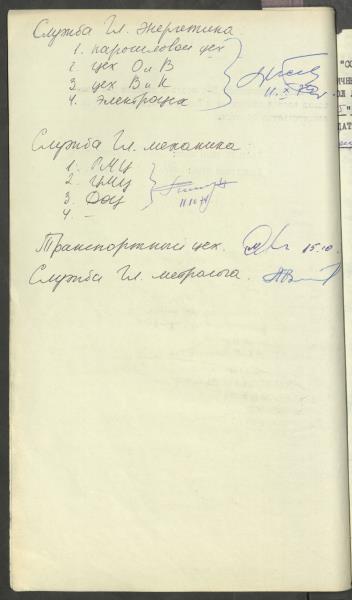 Служба Гл. энергетика
1. паросиловой цех
2. цех ОиВ
3. цех ВиК
4. электроцех
Служба Гл. механика
1. РМЦ
2. ЦМЦ
3.
4. —
Транспортный цех. 15.10.
Служба Гл. метролога.